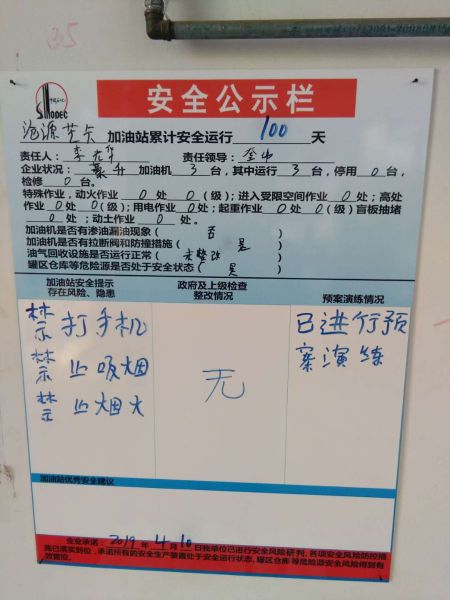 35
中国石化
SINOPEC
安全公示栏
沧源芒卡 加油站累计安全运行 100 天
责任人： 责任领导：
企业状况： 加油机 3 台，其中运行 3 台，停用 0 台，
检修 0 台。
特殊作业，动火作业 0 处 0 （级）；进入受限空间作业 0 处；高处
作业 0 处 0 （级）；用电作业 0 处；起重作业 0 处 0 （级）盲板抽堵
0 处；动土作业 0 处。
加油机是否有渗油漏油现象（ 否 ）
加油机是否有拉断阀和防撞措施（ 是 ）
油气回收设施是否运行正常（ 未整改 ）
罐区仓库等危险源是否处于安全状态（ 是 ）
加油站安全提示
存在风险、隐患
禁打手机
禁止吸烟
禁止烟火
政府及上级检查
整改情况
无
预案演练情况
已进行预
案演练
加油站优秀安全建议
企业承诺：2019 年 4 月 10 日我单位已进行安全风险研判，各项安全风险防控措
施已落实到位，承诺所有的安全生产装置处于安全运行状态，罐区仓库等危险源安全风险得到有
效管控。